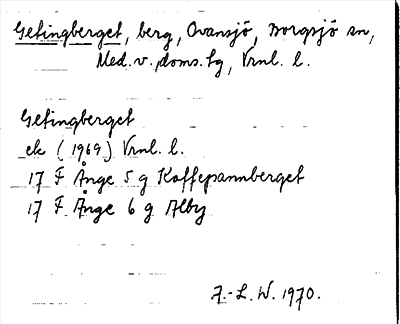 Getingberget, berg, Ovansjö, Borgsjö sn,
Med. v. doms. tg, Vrnl. l.
Getingberget
ek (1969) Vrnl. l.
17 F Ånge 5 g Kaffepannberget
17 F Ånge 6 g Alby
A.-L. W. 1970.